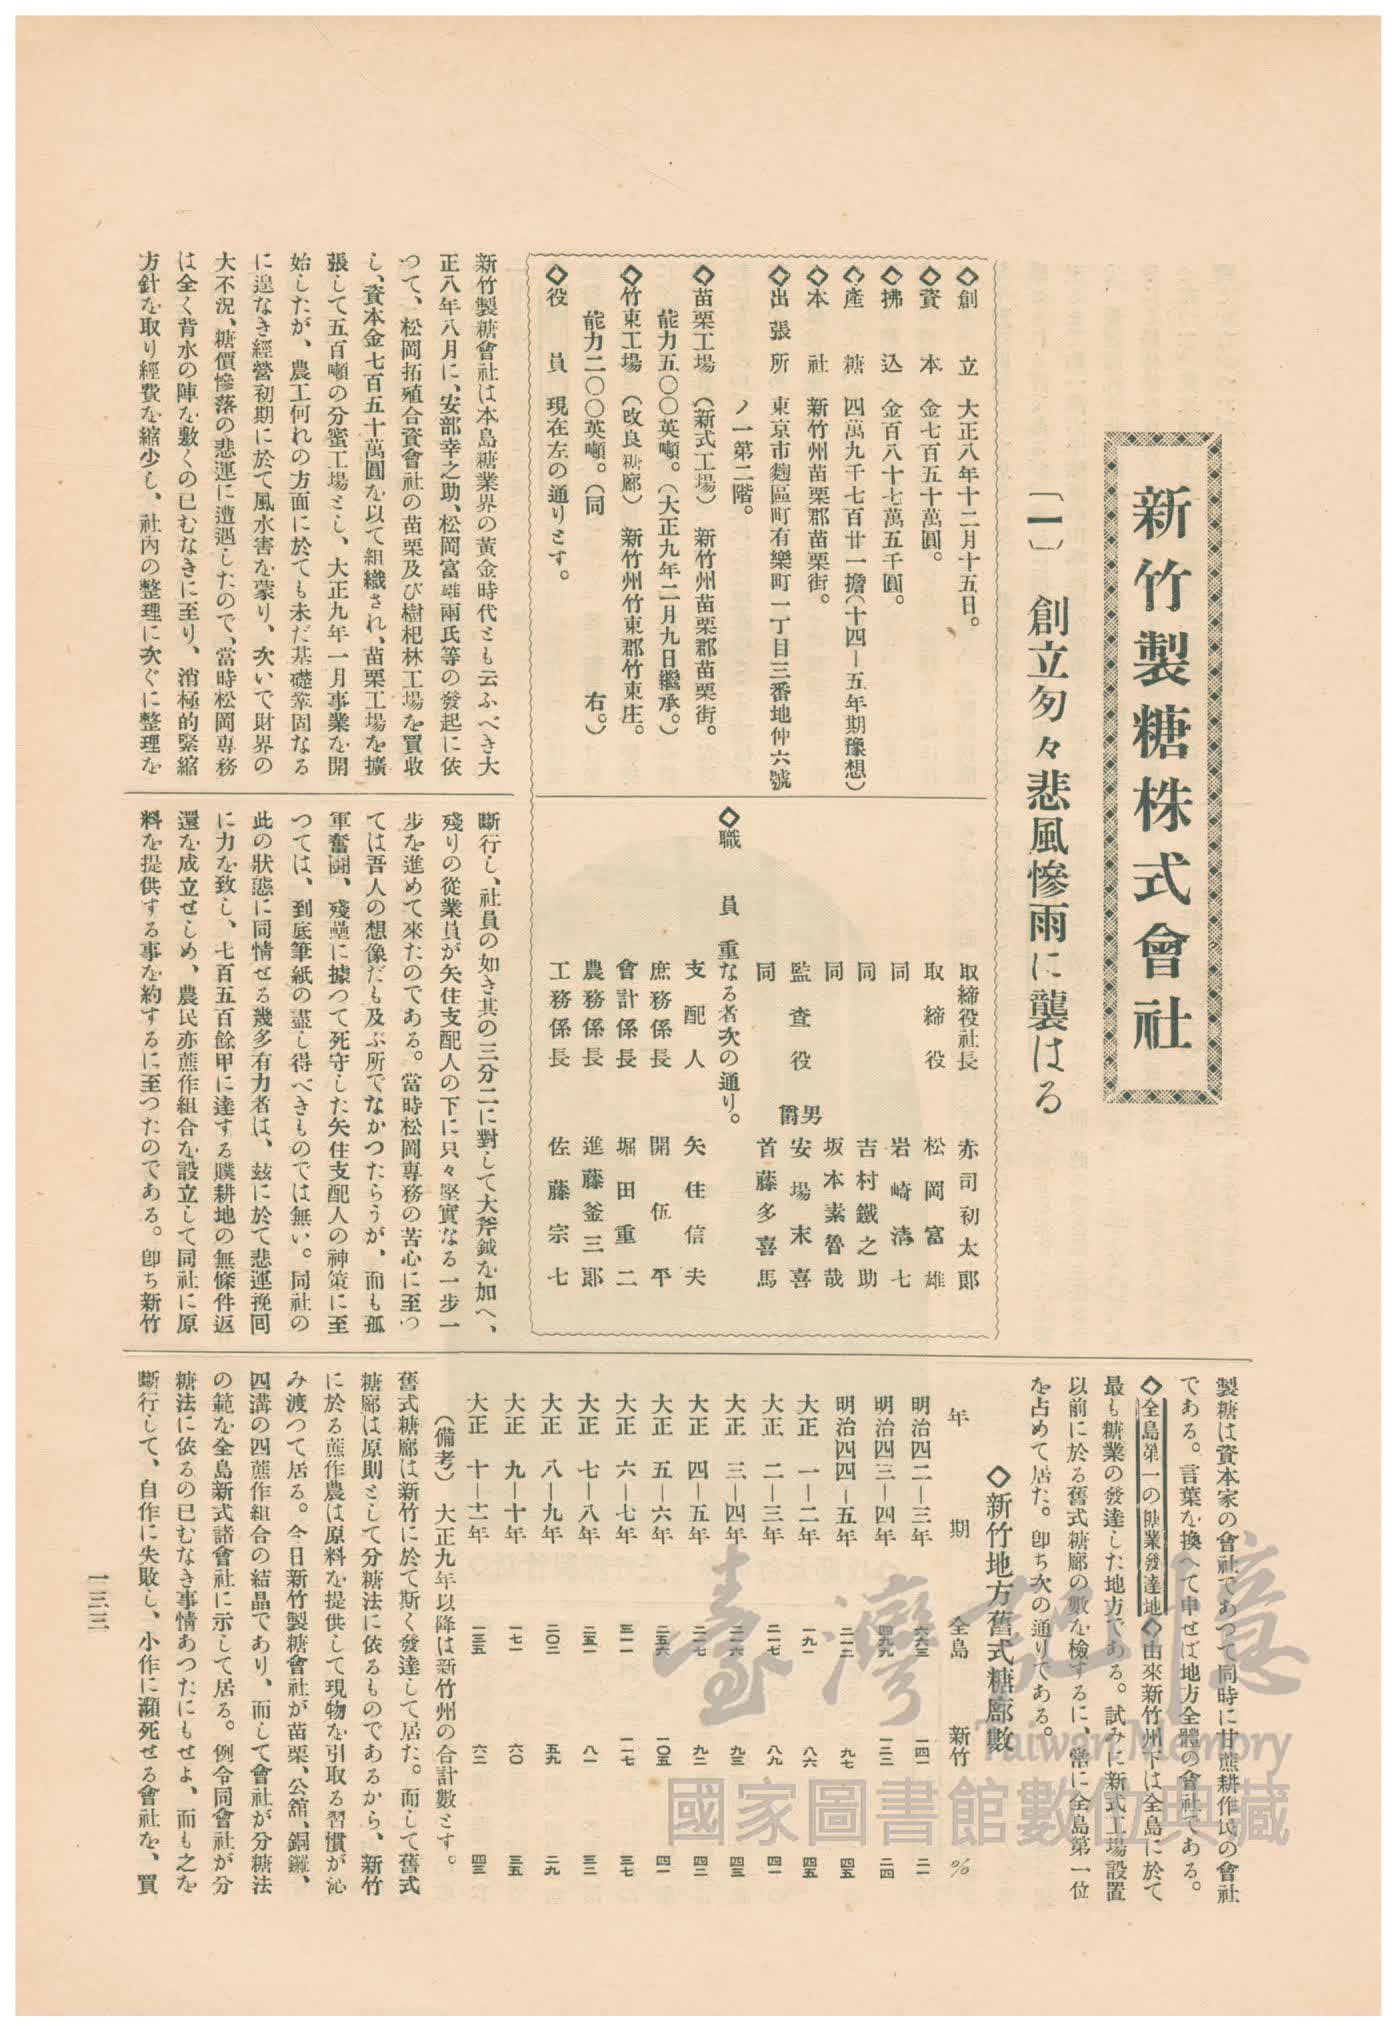 新竹製糖株式會社
〔一〕 創立匆々悲風慘雨に襲はる
◇創立 大正八年十二月十五日。
◇資本 金七百五十萬圓。
◇拂込 金百八十七萬五千圓。
◇產糖 四萬九千七百廿一擔(十四—五年期豫想)
◇本社 新竹州苗栗郡苗栗街。
◇出張所 東京市麴區町有樂町一丁目三番地仲六號
ノ一第二階。
◇苗栗工場 (新式工場) 新竹州苗栗郡苗栗街。
能力五〇〇英噸。(大正九年二月九日繼承。)
◇竹東工場 (改良糖廍) 新竹州竹東郡竹東庄。
能力二〇〇英噸。(同 右。)
◇役員 現在左の通りとす。
取締役社長 赤司初太郎
取締役 松岡富雄
同 岩崎淸七
同 吉村鐵之助
同 坂本素魯哉
監査役 男爵 安場末喜
同 首藤多喜馬
◇職員 重なる者次の通り。
支配人 矢住信夫
庶務係長 開伍平
會計係長 堀田重二
農務係長 進藤釜三郎
工務係長 佐藤宗七
新竹製糖會社は本島糖業界の黃金時代とも云ふべき大
正八年八月に、安部幸之助、松岡富雄兩氏等の發起に依
つて、松岡拓殖合資會社の苗栗及び樹杞林工場を買收
し、資本金七百五十萬圓を以て組織され、苗栗工場を擴
張して五百噸の分蜜工場とし、大正九年一月事業を開
始したが、農工何れの方面に於ても未だ基礎鞏固なる
に遑なき經營初期に於て風水害を蒙り、次いで財界の
大不況、糖價慘落の悲運に遭遇したので、當時松岡專務
は全く背水の陣を敷くの已むなきに至り、消極的緊縮
方針を取り經費を縮少し、社內の整理に次ぐに整理を
斷行し、社員の如き其の三分二に對して大斧鉞を加へ、
殘りの從業員が矢住支配人の下に只々堅實なる一步一
步を進めて來たのである。當時松岡專務の苦心に至つ
ては吾人の想像だも及ぶ所でなかつたらうが、而も孤
軍奮鬪、殘壘に據つて死守した矢住支配人の神策に至
つては、到底筆紙の盡し得べきものでは無い。同社の
此の狀態に同情せる幾多有力者は、玆に於て悲運挽囘
に力を致し、七百五百餘甲に達する贌耕地の無條件返
還を成立せしめ、農民亦蔗作組合を設立して同社に原
料を提供する事を約するに至つたのである。卽ち新竹
製糖は資本家の會社であつて同時に甘蔗耕作民の會社
である。言葉を換へて申せば地方全體の會社である。
◇全島第一の糖業發達地◇由來新竹州下は全島に於て
最も糖業の發達した地方である。試みに新式工場設置
以前に於る舊式糖廍の數を檢するに、常に全島第一位
を占めて居た。卽ち次の通りである。
◇新竹地方舊式糖廍數
年期 全島 新竹 %
明治四二—三年 六六三 一四一 二一
明治四三—四年 四九九 一二二 二四
明治四四—五年 二一二 九七 四五
大正 一—二年 一九一 八六 四五
大正 二—三年 二一七 八九 四一
大正 三—四年 二一六 九三 四三
大正 四—五年 二一七 九二 四二
大正 五—六年 二五六 一〇五 四一
大正 六—七年 三一一 一一七 三七
大正 七—八年 二五一 八一 三二
大正 八—九年 二〇二 五九 二九
大正 九—十年 一七一 六〇 三五
大正 十—十一年 一三五 六二 四三
(備考) 大正九年以降は新竹州の合計數とす。
舊式糖廍は新竹に於て斯く發達して居た。而して舊式
糖廍は原則として分糖法に依るものであるから、新竹
に於る蔗作農は原料を提供して現物を引取る習慣が沁
み渡つて居る。今日新竹製糖會社が苗栗、公館、銅鑼、
四溝の四蔗作組合の結晶であり、而して會社が分糖法
の範を全島新式諸會社に示して居る。例令同會社が分
糖法に依るの已むなき事情あつたにもせよ、而も之を
斷行して、自作に失敗し、小作に瀕死せる會社を、買
一三三
臺灣記憶
Taiwan Memory
國家圖書館數位典藏